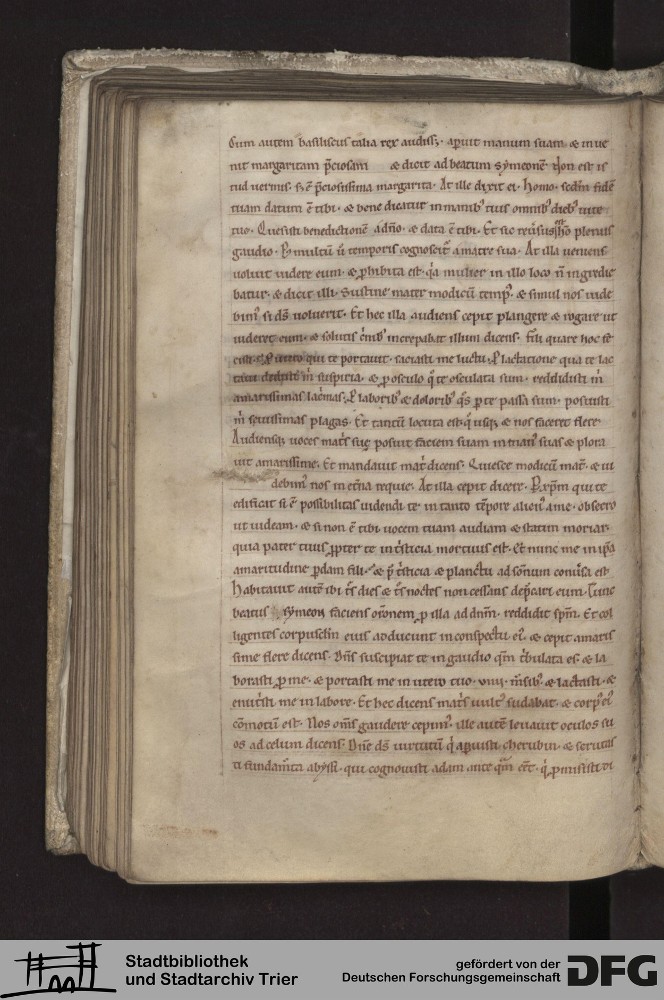 Cum autem basiliscus talia rex audiss; · aperuit manum suam · & inve
nit margaritam p̄ciosam & dicit ad beatum symeonē Non est is
tud vermis · s; ē p̄ciosissima margarita · At ille dixit ei · homo · scd̄m fidē
tuam datum ē tibi · & bene dicatur in manib; tuis omnib; dieb; vite
tue · Quesisti benedictionē a dn̄o · & data ē tibi · Et sic reversus plenus
gaudio · P multū ū temporis cognoscit᷑ a matre sua · At illa veniens
voluit videre eum · & p̱hibita est · q̇a mulier in illo loco n̄ ingredie
batur · & dicit illi · Sustine mater modicū temp᷒ · & simul nos vide
bim᷒ si d̄s voluerit · Et hec illa audiens cepit plangere & rogare ut
videret eum · & solutis c̄nib; increpabat illum dicens · fili quare hoc fe
cisti · P utero qui te portavit · saciasti me luctu · P lactatione qua te lac
tavi dedisti m̄ suspiria · & p̱ osculo q̄ te osculata sum · reddidisti m̄
amarissimas lac̄mas · P laborib; & dolorib; q̄s p̱ te passa sum · posuisti
m̄ sevissimas plagas · Et tantū locuta est · q̄ usq; & nos faceret flere
Audiensq; voces mat̄s sue posuit faciem suam in man᷒ suas & plora
vit amarissime · Et mandavit mat̄ dicens · Quiesce modicū mat̄ · & vi
debim᷒ nos in et̄na requie · At illa cepit dicere · P xp̄m qui te
edificat si ē possibilitas videndi te · in tanto tēpore alien᷒ a me · obsecro
ut videam · & si non ē tibi vocem tuam audiam & statim moriar ·
quia pater tuus p̱pter te in t̄sticia mortuus est · Et nunc me in ip̄a
amaritudine p̱dam fili · & p̄ t̄sticia & planctu ad sonum conv̄sa est
Habitavit autē ibi t̄s dies & t̄s noctes non cessans dep̄cari eum · Tunc
beatus symeon faciens or̄onem p̱ illa ad dn̄m · reddidit sp̄m · Et col
ligentes corpuscl̄m eius adducunt in conspectu ei᷒ · & cepit amaris
sime flere dicens · Dn̄s suscipiat te in gaudio q̄m t̄bulata es · & la
borasti p̱ me · & portasti me in utero tuo · viiii · m̄sib; & lactasti · &
enut̄sti me in labore · Et hec dicens mat̄s vult᷒ sudabat · & corp᷒ ei᷒
cōmotū est · Nos om̄s gaudere cepim᷒ · ille autē levavit oculos su
os ad celum dicens · Dn̄e d̄s virtutū q̇ aperuisti cherubin · & scrutas
ti fundam̄ta abyssi · qui cognovisti adam ante q̄m cēt · q̇ p̱misisti di
Stadtbibliothek
und Stadtarchiv Trier
gefördert von der
Deutschen Forschungsgemeinschaft
DFG